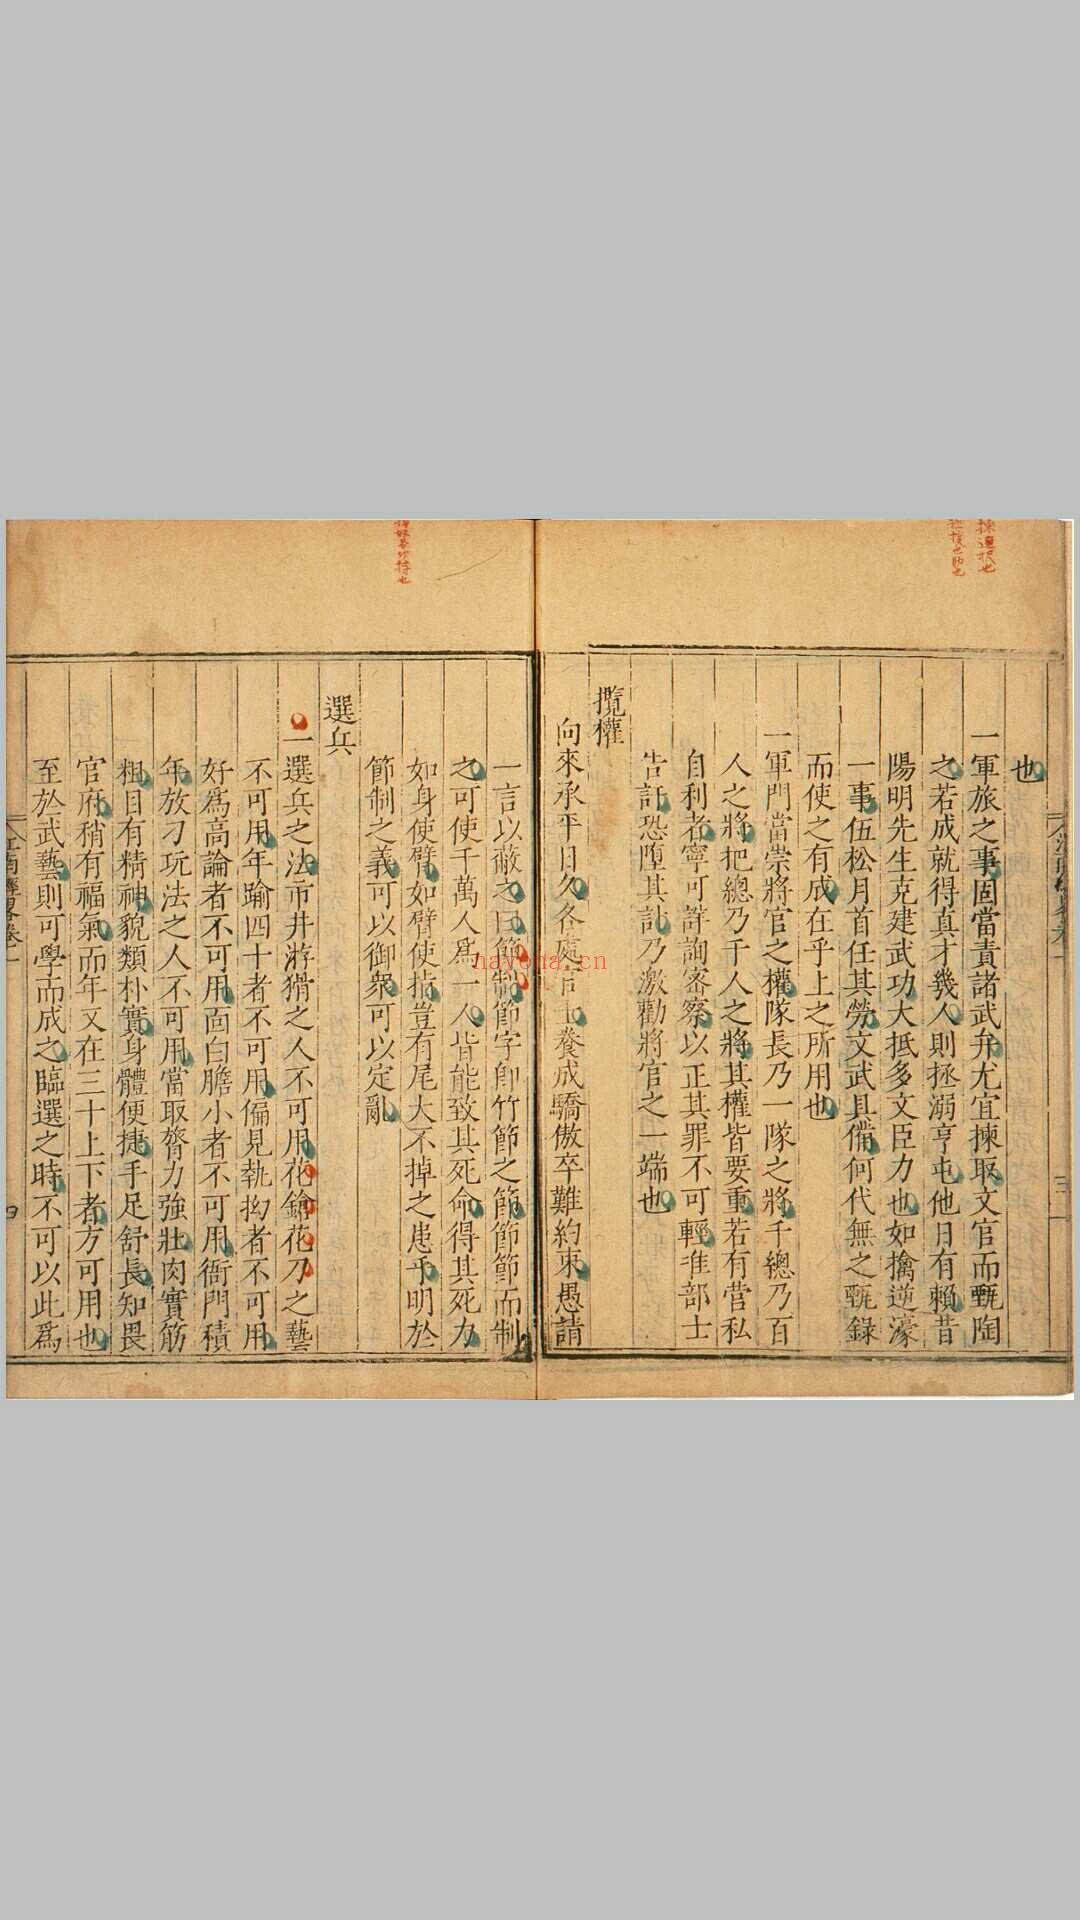 也
一軍旅之事固當責諸武弁尤宜揀取文官而甄陶
之若成就得真才幾人則拯溺亨屯他日有賴昔
陽明先生克建武功大抵多文臣力也如擒逆濠
一事伍松月首任其勞文武具備何代無之甄錄
而使之有成在乎上之所用也
一軍門當崇將官之權隊長乃一隊之將千總乃百
人之將把總乃千人之將其權皆要重若有營私
自利者寧可詳詢密察以正其罪不可輕准部士
告訐恐墮其計乃激勸將官之一端也
攬權
向來承平日久各處官士養成驕傲卒難約束愚請
一言以蔽之曰節制節字卽竹節之節節節而制
之可使千萬人爲一人皆能致其死命得其死力
如身使臂如臂使指豈有尾大不掉之患乎明於
節制之義可以御衆可以定亂
選兵
一選兵之法市井游猾之人不可用花鎗花刀之藝
不可用年踰四十者不可用偏見執拗者不可用
好爲高論者不可用面白膽小者不可用衙門積
年放刁玩法之人不可用當取膂力強壯肉實筋
粗目有精神貌類朴實身體便捷手足舒長知畏
官府稍有福氣而年又在三十上下者方可用也
至於武藝則可學而成之臨選之時不可以此爲
江南經略卷一
四
nayona.cn